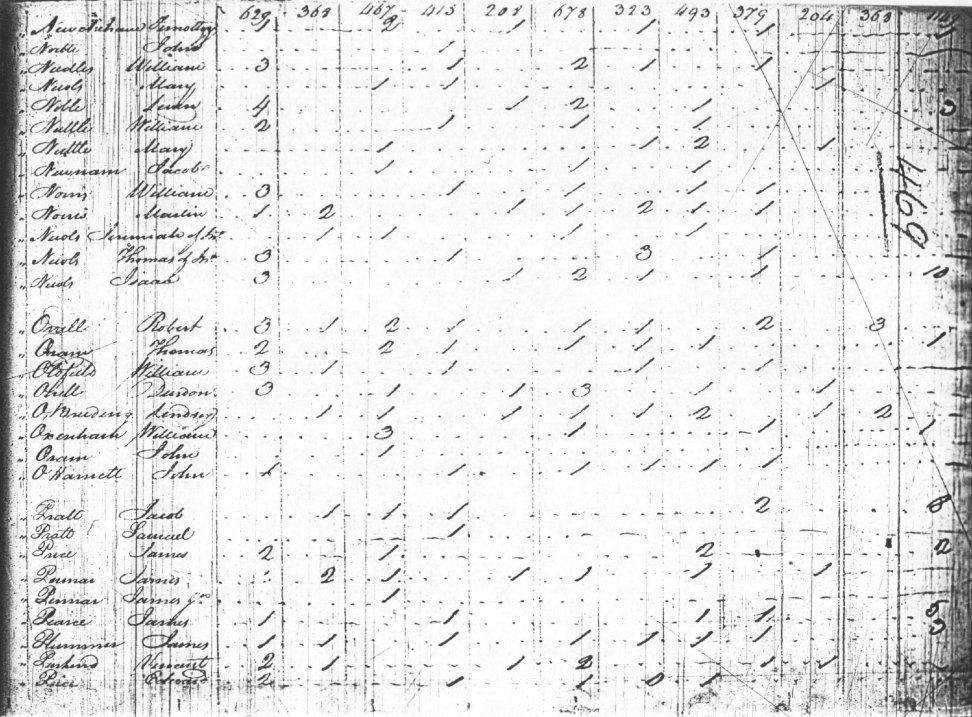 629 363 467 415 208 678 323 493 379 204 368
Timothy 1 2 1 1 1 1
Noble John 1
Needles William 3 1 2 1 1 1
Neols Mary 1 1 1
Noble 4 1 2 1 3
Nuttle William 2 1 1 1
Nuttle Mary 1 1 2 1
Newnam Jacob 1 1 1
Norris William 3 1 1 1 1
Norris Martin 1 2 1 1 2 1 1
469
Neols Jeremiah of 1 1 1 1
Neols Thomas of 3 1 3 1
Neols Isaac 3 1 2 1 1 10
Orell Robert 3 1 2 1 1 1 2 3
Oram Thomas 2 2 1 1 1 1 1
Oldfield William 3 1 1 1 1
3 1 1 3 1 1
Lindsey 1 1 1 1 1 2 1 2
Oxenham William 3 1 1 1
Oram John 1
O Harnett John 1 1 1 1 1
Pratt Jacob 1 1 1 2 8
Pratt Samuel 1
Price James 2 1 2 2
James 2 1 1 1 1 1
James Jr 1
Pearce James 1 1 1 1 5
Plummer James 1 1 1 1 1 1 1
Vincent 2 1 1 2 1 1
Price Edward 2 1 1 0 1